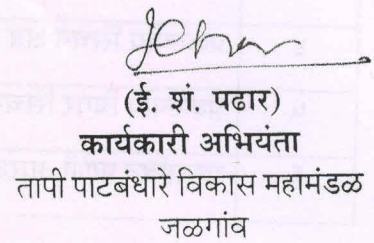 (ई. शं. पढार)
कार्यकारी अभियंता
तापी पाटबंधारे विकास महामंडळ
जळगांव